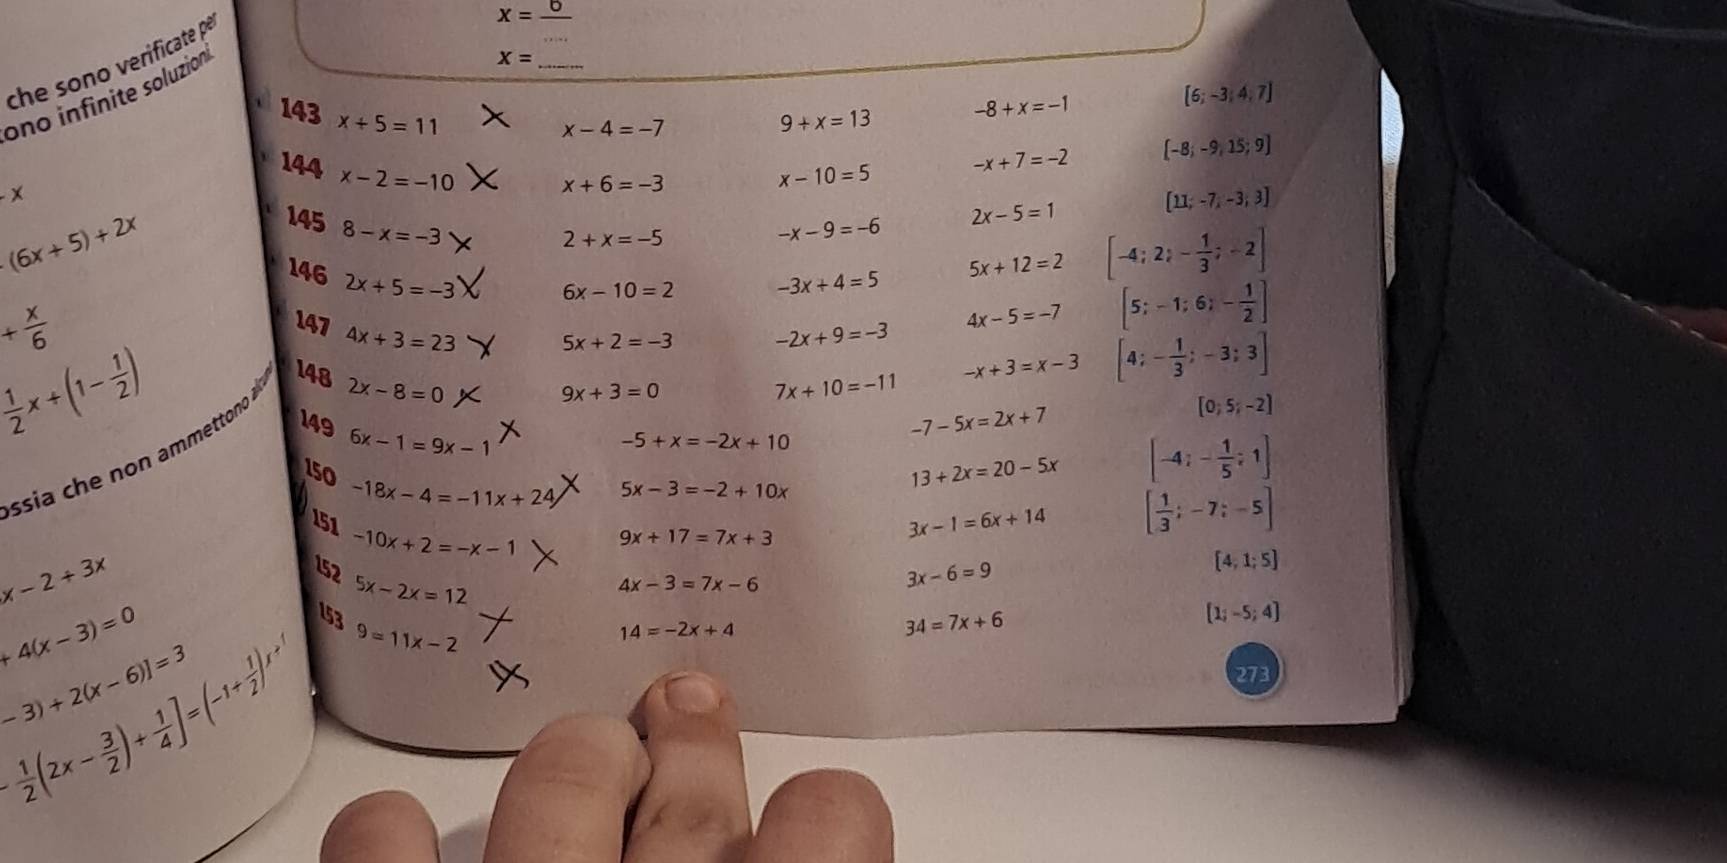 che sono verificate per
ono infinite soluzioni.
- x
- (6x + 5) + 2x
+ x/6
1/2 x + (1 - 1/2)
ossia che non ammettono
x - 2 + 3x
+ 4(x - 3) = 0
- 3) + 2(x - 6)] = 3
- 1/2 (2x - 3/2) + 1/4] = (-1 + 1/2) x +
x =
x = ........
143 x + 5 = 11 x - 4 = -7 9 + x = 13 -8 + x = -1 [6; -3; 4; 7]
144 x - 2 = -10 x + 6 = -3 x - 10 = 5 -x + 7 = -2 [-8; -9; 15; 9]
145 8 - x = -3 2 + x = -5 -x - 9 = -6 2x - 5 = 1 [11; -7; -3; 3]
146 2x + 5 = -3 6x - 10 = 2 -3x + 4 = 5 5x + 12 = 2 [-4; 2; -1/3; -2]
147 4x + 3 = 23 5x + 2 = -3 -2x + 9 = -3 4x - 5 = -7 [5; -1; 6; -1/2]
148 2x - 8 = 0 9x + 3 = 0 7x + 10 = -11 -x + 3 = x - 3 [4; -1/3; -3; 3]
149 6x - 1 = 9x - 1 -5 + x = -2x + 10 -7 - 5x = 2x + 7 [0; 5; -2]
150 -18x - 4 = -11x + 24 5x - 3 = -2 + 10x 13 + 2x = 20 - 5x [-4; -1/5; 1]
151 -10x + 2 = -x - 1 9x + 17 = 7x + 3 3x - 1 = 6x + 14 [1/3; -7; -5]
152 5x - 2x = 12 4x - 3 = 7x - 6 3x - 6 = 9 [4; 1; 5]
153 9 = 11x - 2 14 = -2x + 4 34 = 7x + 6 [1; -5; 4]
273